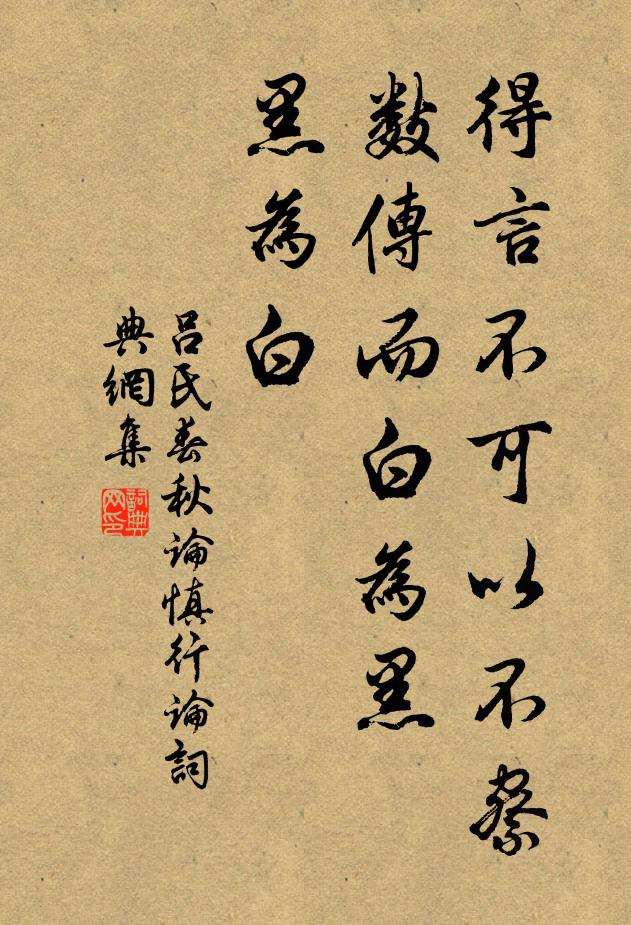 得言不可以不察
數傳而白為黑
黑為白
呂氏春秋論慎行論詞
典網集
詞典
网印